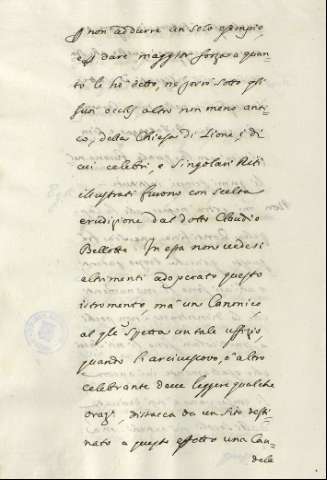 p non addurre un solo esempio,
e p dare maggior forza a quan=
to le hò detto, ne porrò sotto gli
suoi occhi altro non meno anti=
co, della Chiesa di Lione, i di
cui celebri, e singolari Riti
illustrati furono con scelta
erudizione dal dotto Claudio
Bellotte. In essa non vedesi
altrimenti adoperato questo
istromento, mà un Canonico,
al qle spetta un tale uffizio,
quando l'Arcivescovo, ò altro
celebrante deve leggere qualche
oraz.e, distacca da un sito desti=
nato a questo effetto una Can=
dela